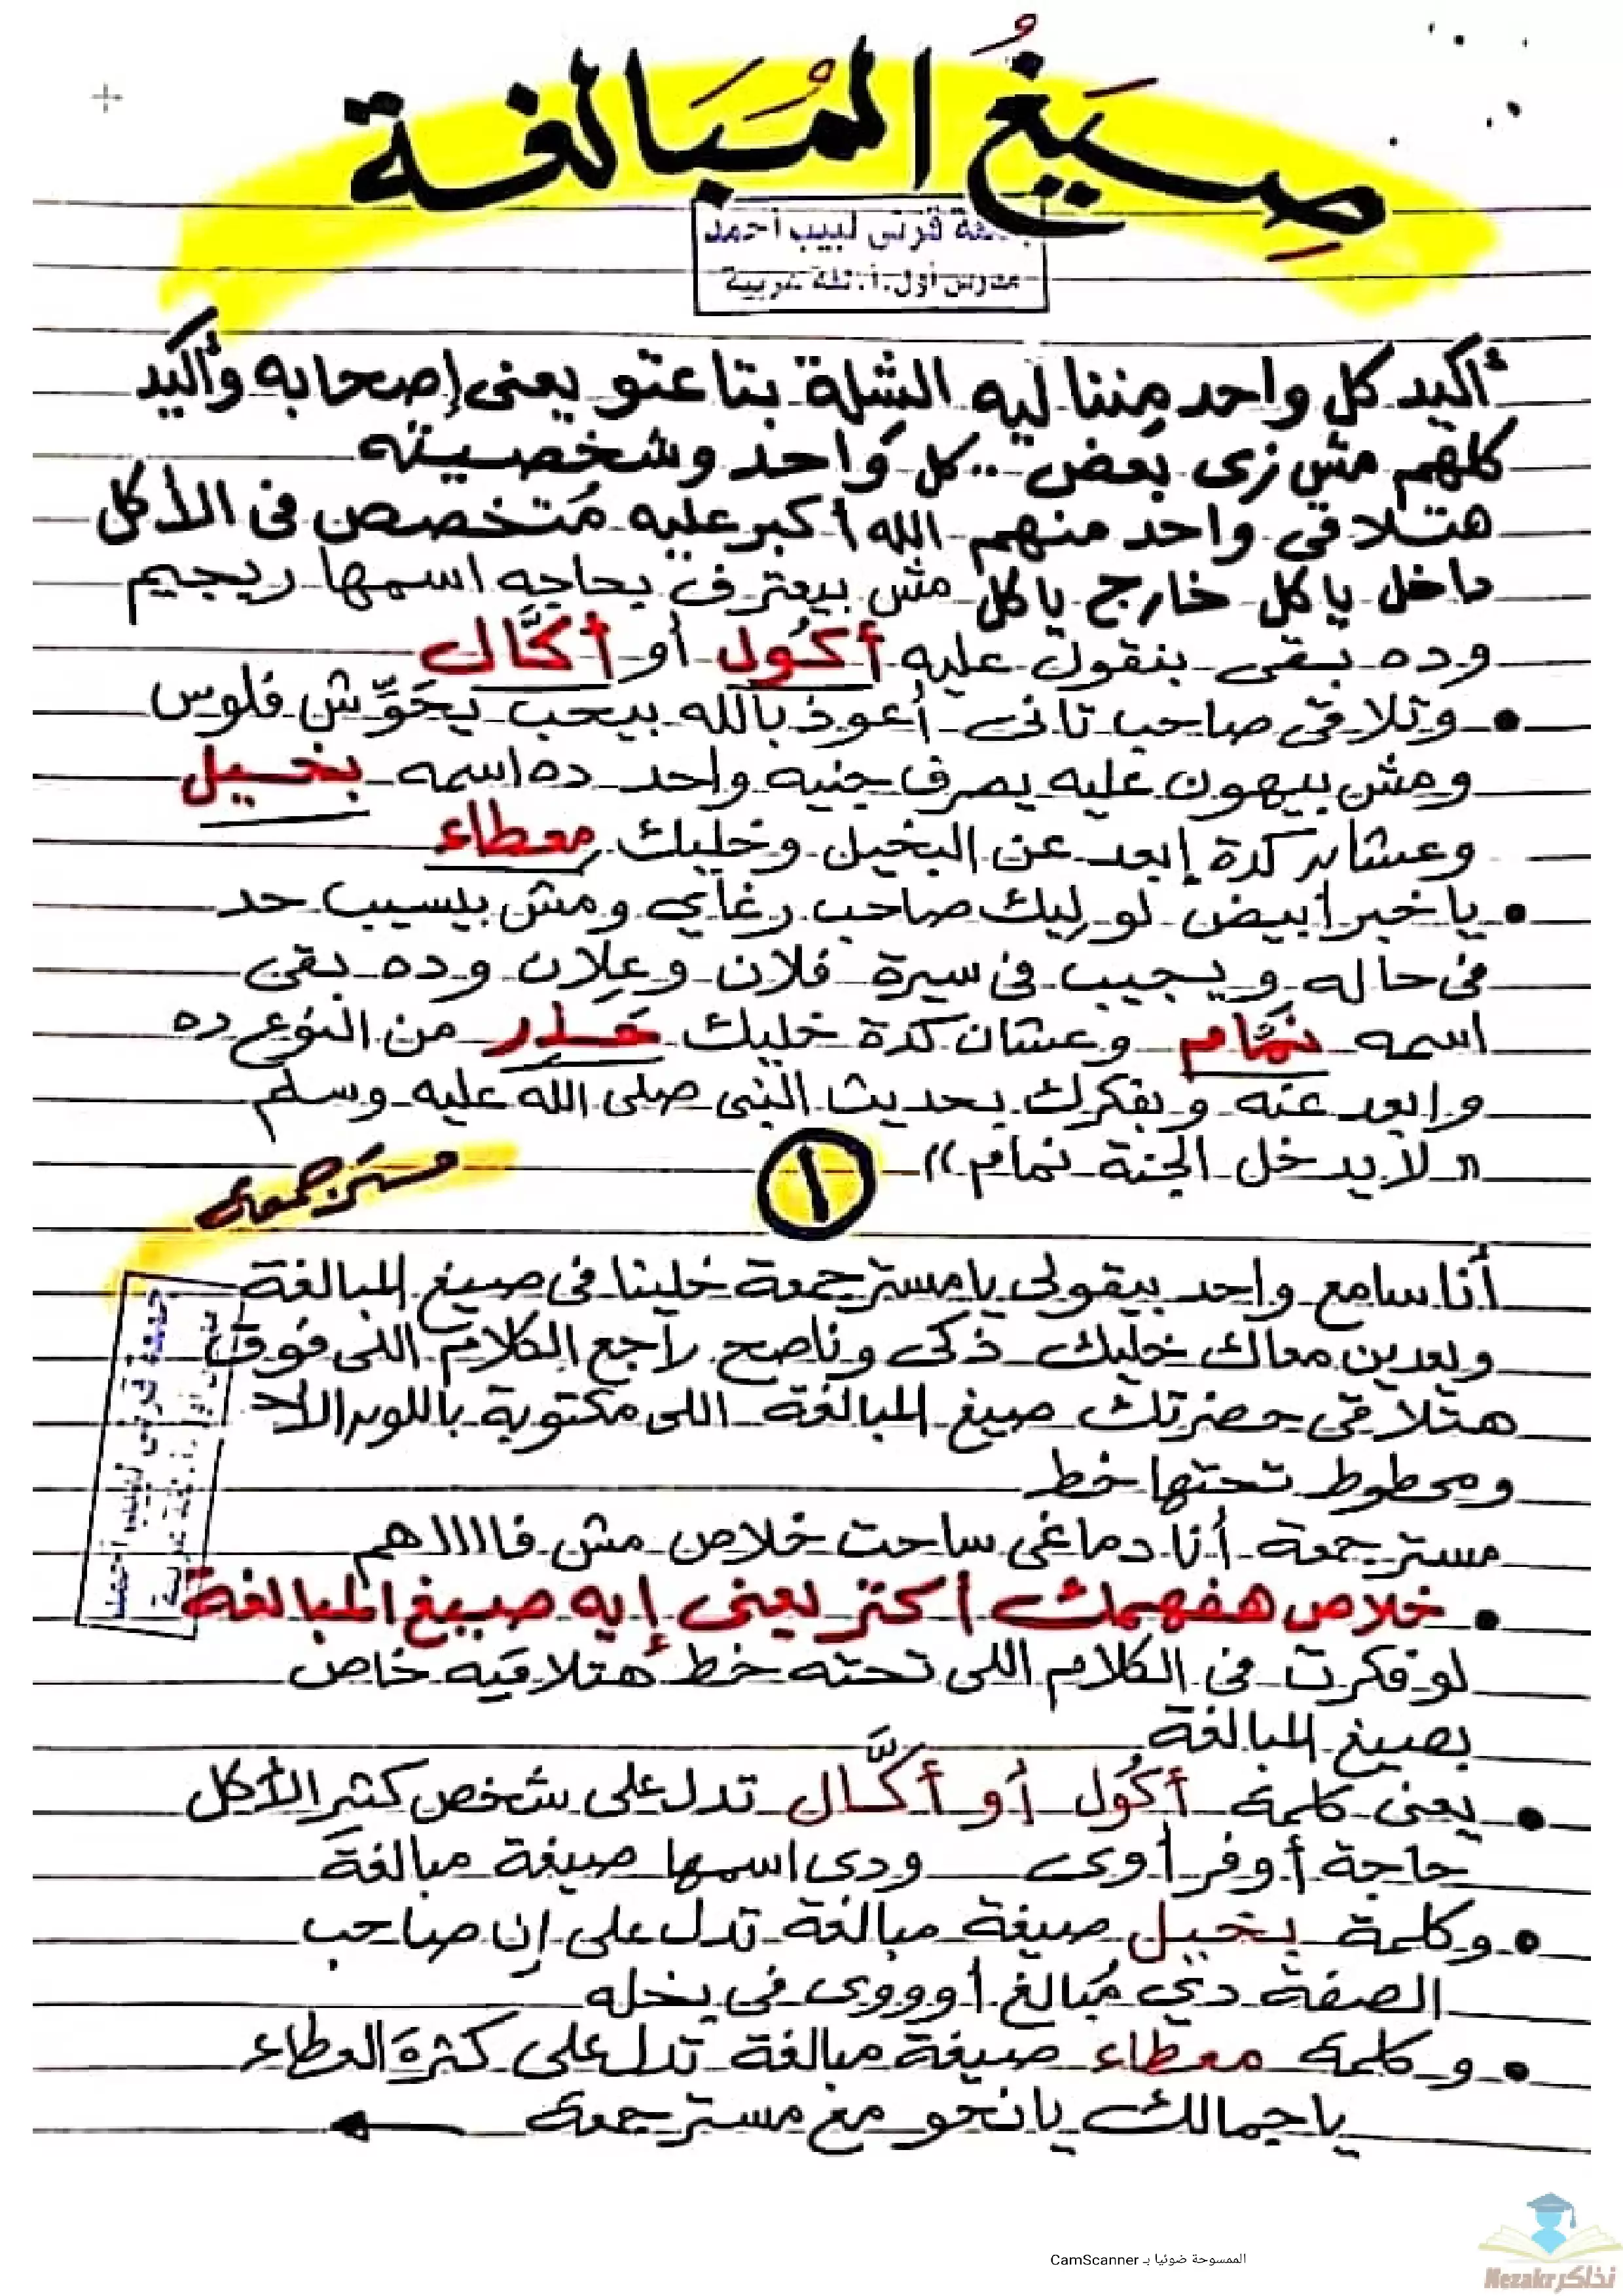 صِيَغُ المُبَالغة
قرنى لبيب أحمد
مدرس أول.أ. لغة عربية
أكيد كل واحد مننا ليه الشلة بتاعتو يعنى إصحابه وأكيد
كلهم مش زى بعض .. كل واحد وشخصيته
هتلاقي واحد منهم الله أكبر عليه مُتخصص فى الأكل
داخل ياكل خارج ياكل مش بيعترف بحاجه اسمها ريجيم
وده بقى بنقول عليه أكُول أو أكَّال
• وتلاقى صاحب تانى أعوذ بالله بيحب يحَوِّش فلوس
ومش بيهون عليه يصرف جنيه واحد ده اسمه بخيل
وعشان كدة إبعد عن البخيل وخليك معطاء
• يا خبر أبيض لو ليك صاحب رغاي ومش بيسيب حد
فى حاله ويجيب فى سيرة فلان وعلان وده بقى
اسمه نمَّام وعشان كدة خليك حَذر من النوع ده
وابعد عنه وبفكرك بحديث النبى صلى الله عليه وسلم
«لا يدخل الجنة نمام»
١
مستر جمعه
أنا سامع واحد بيقولى يا مستر جمعة خلينا فى صيغ المبالغة
وبعدين معاك خليك ذكى وناصح راجع الكلام اللى فوق
هتلاقى حضرتك صيغ المبالغة اللى مكتوبة باللون الأحمر
ومحطوط تحتها خط
مستر جمعة أنا دماغى ساحت خلاص مش فااااهم
• خلاص هفهمك أكتر يعنى إيه صيغ المبالغة
لو فكرت فى الكلام اللى تحته خط هتلاقيه خاص
بصيغ المبالغة
• يعنى كلمة أكُول أو أكَّال تدل على شخص كثير الأكل
حاجة أوفر أوى ودى اسمها صيغة مبالغة
• وكلمة بخيل صيغة مبالغة تدل على إن صاحب
الصفة دي مُبالغ أوووى فى بخله
• وكلمة معطاء صيغة مبالغة تدل على كثرة العطاء
يا جمالك يا نحو مع مستر جمعه
الممسوحة ضوئيا بـ CamScanner
نذاكر Nezakr